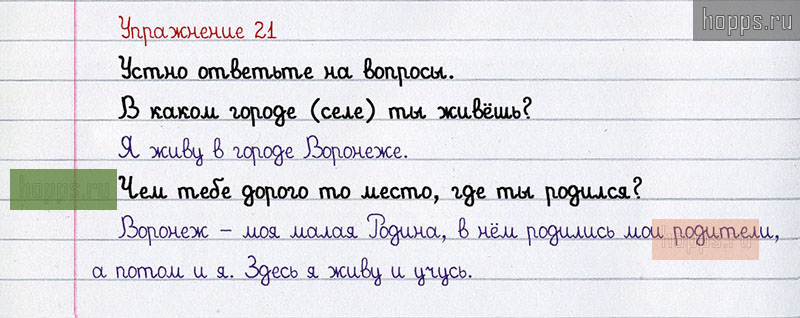 hopps.ru
Упражнение 21
Устно ответьте на вопросы.
В каком городе (селе) ты живёшь?
Я живу в городе Воронеже.
hopps.ru
Чем тебе дорого то место, где ты родился?
Воронеж – моя малая Родина, в нём родились мои родители,
hopps.ru
а потом и я. Здесь я живу и учусь.